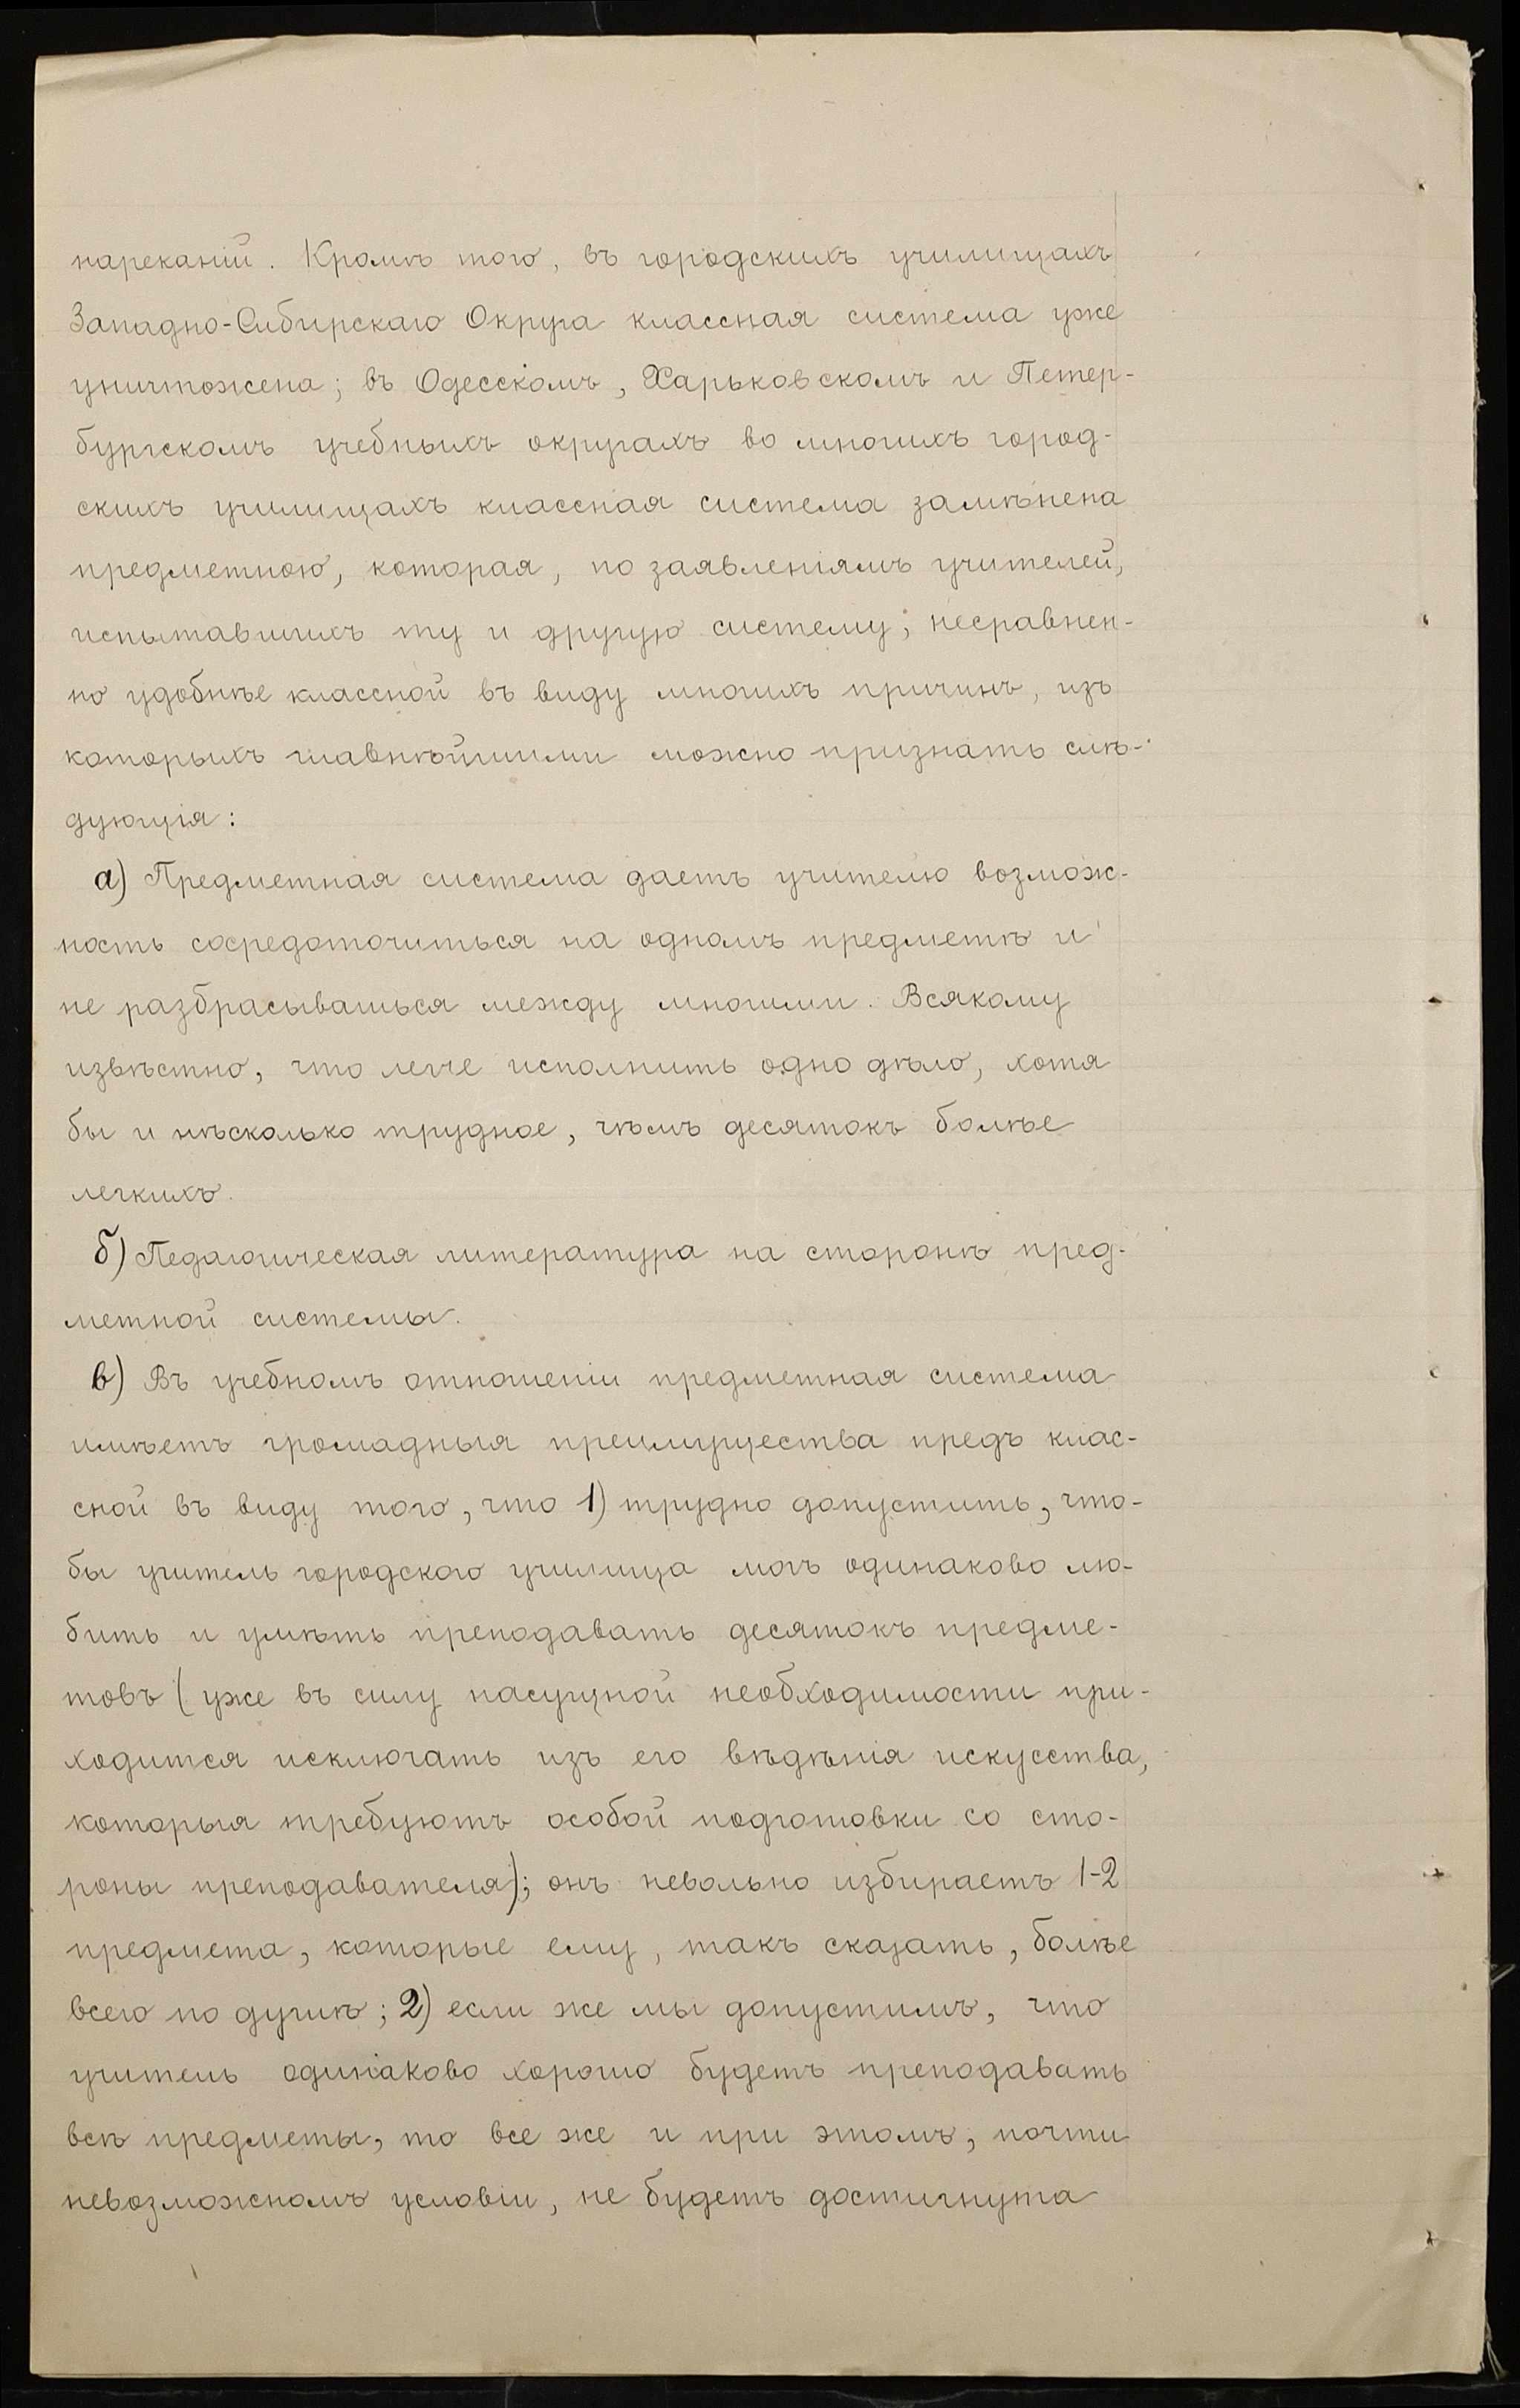 нареканій. Кромѣ того, въ городскихъ училищахъ
Западно-Сибирскаго Округа классная система уже
уничтожена; въ Одесскомъ, Харьковскомъ и Петер-
бургскомъ учебныхъ округахъ во многихъ город-
скихъ училищахъ классная система замѣнена
предметною, которая, по заявленіямъ учителей,
испытавшихъ ту и другую систему, несравнен-
но удобнѣе классной въ виду многихъ причинъ, изъ
которыхъ главнѣйшими можно признать слѣ-
дующія:
а) Предметная система даетъ учителю возмож-
ность сосредоточиться на одномъ предметѣ и
не разбрасываться между многими. Всякому
извѣстно, что легче исполнить одно дѣло, хотя
бы и нѣсколько трудное, чѣмъ десятокъ болѣе
легкихъ.
б) Педагогическая литература на сторонѣ пред-
метной системы.
в) Въ учебномъ отношеніи предметная система
имѣетъ громадныя преимущества предъ клас-
сной въ виду того, что 1) трудно допустить, что-
бы учитель городского училища могъ одинаково лю-
бить и умѣть преподавать десятокъ предме-
товъ (уже въ силу насущной необходимости при-
ходится исключать изъ его вѣдѣнія искусства,
которыя требуютъ особой подготовки со сто-
роны преподавателя); онъ невольно избираетъ 1-2
предмета, которые ему, такъ сказать, болѣе
всего по душѣ; 2) если же мы допустимъ, что
учитель одинаково хорошо будетъ преподавать
всѣ предметы, то все же и при этомъ, почти
невозможномъ условіи, не будетъ достигнута